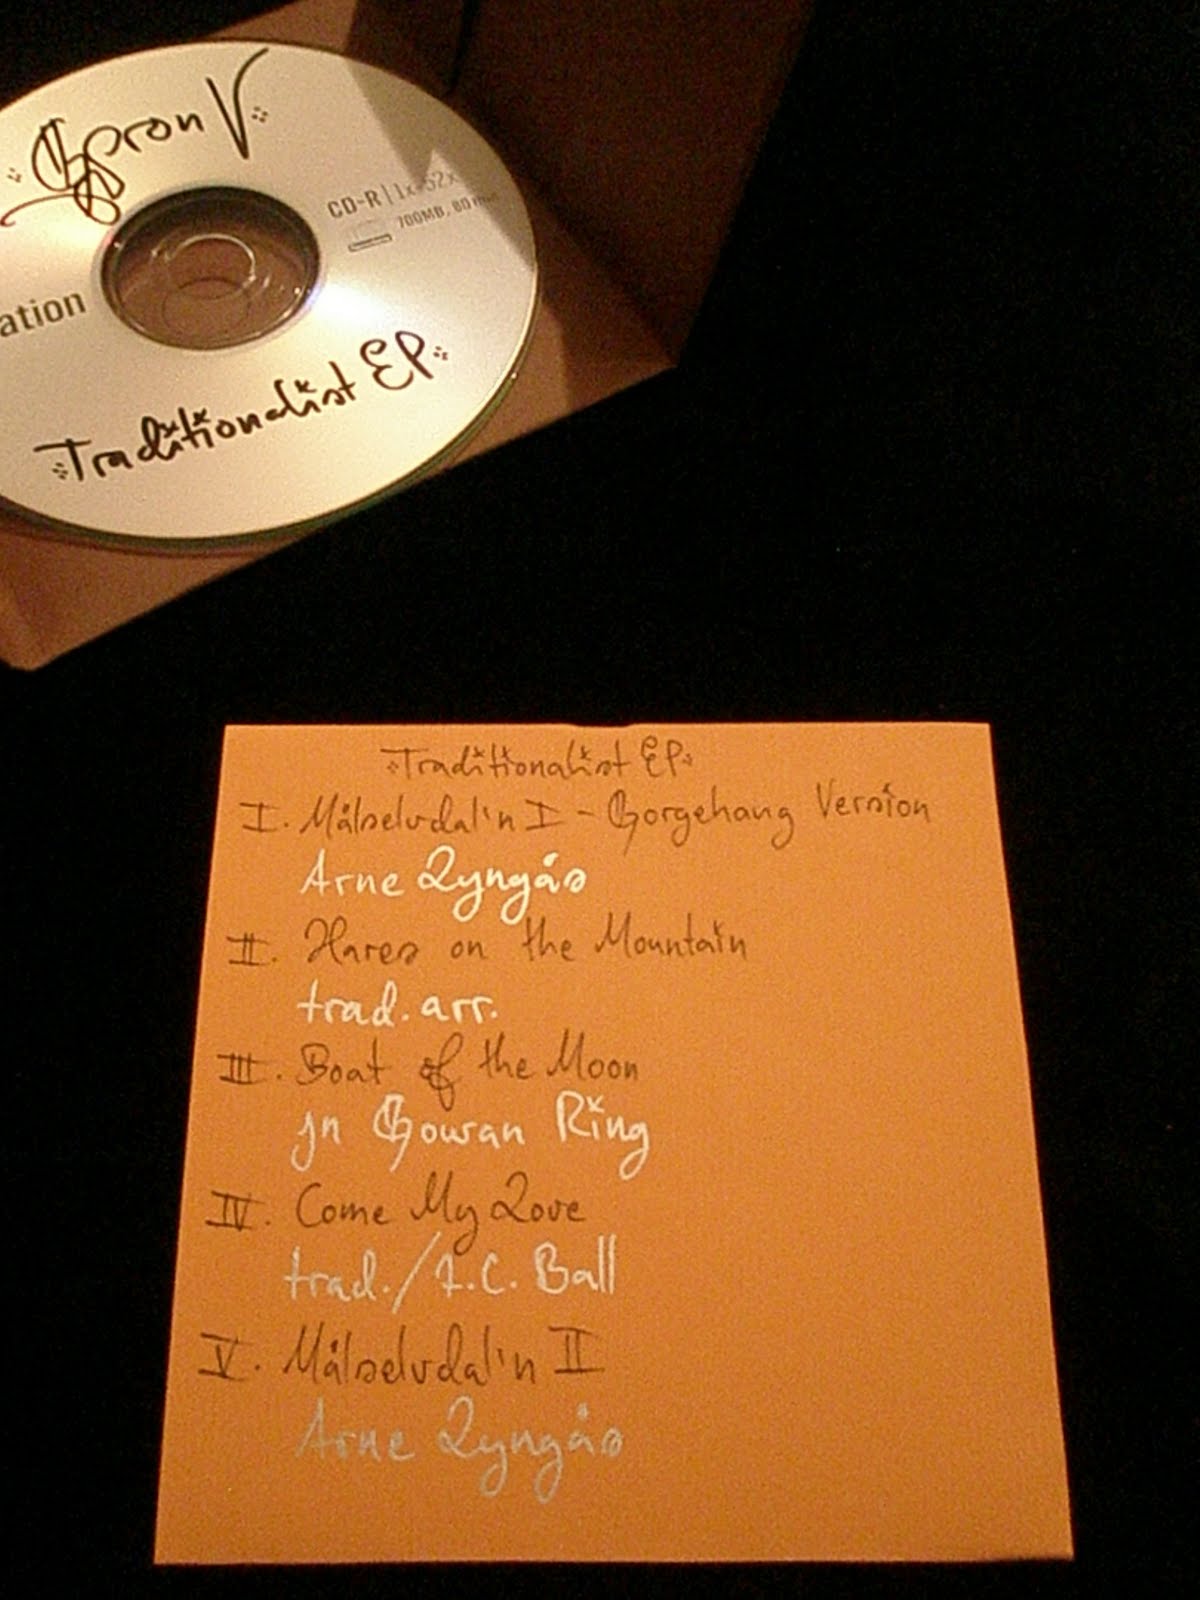 V
ation
CD-R | 1x-52x
700MB, 80 min
Traditionalist EP
Traditionalist EP
I. Målselvdal'n I - Gorgehang Version
Arne Lyngås
II. Hares on the Mountain
trad. arr.
III. Boat of the Moon
In Gowan Ring
IV. Come My Love
trad./E.C. Ball
V. Målselvdal'n II
Arne Lyngås